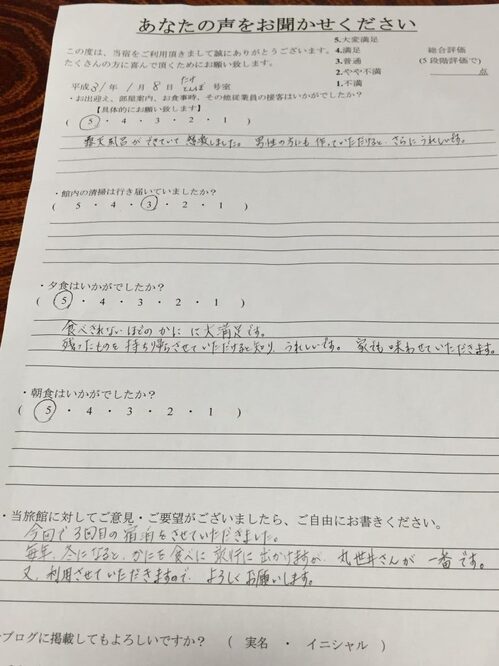 あなたの声をお聞かせください
この度は、当宿をご利用頂きまして誠にありがとうございます。
たくさんの方に喜んで頂くためにお願い致します。
5.大変満足
4.満足
3.普通
2.やや不満
1.不満
総合評価
(5段階評価で)
点
平成31年 1月 8日 たけ とんぼ 号室
・お出迎え、部屋案内、お食事時、その他従業員の接客はいかがでしたか?
【具体的にお願い致します】
( 5 ・ 4 ・ 3 ・ 2 ・ 1 )
露天風呂ができていて感激しました。 男性の方にも作っていただけると、さらにうれしいです。
・館内の清掃は行き届いていましたか?
( 5 ・ 4 ・ 3 ・ 2 ・ 1 )
・夕食はいかがでしたか?
( 5 ・ 4 ・ 3 ・ 2 ・ 1 )
食べきれないほどのかにに大満足です。
残ったものを持ち帰らせていただけると知り、うれしいです。 家でも味わせていただきます。
・朝食はいかがでしたか?
( 5 ・ 4 ・ 3 ・ 2 ・ 1 )
・当旅館に対してご意見・ご要望がございましたら、ご自由にお書きください。
今回で3回目の宿泊をさせていただきました。
毎年、冬になると、かにを食べに 出かけますが、丸世井さんが一番です。
又、利用させていただきますので、よろしくお願いします。
ブログに掲載してもよろしいですか? ( 実名 ・ イニシャル )